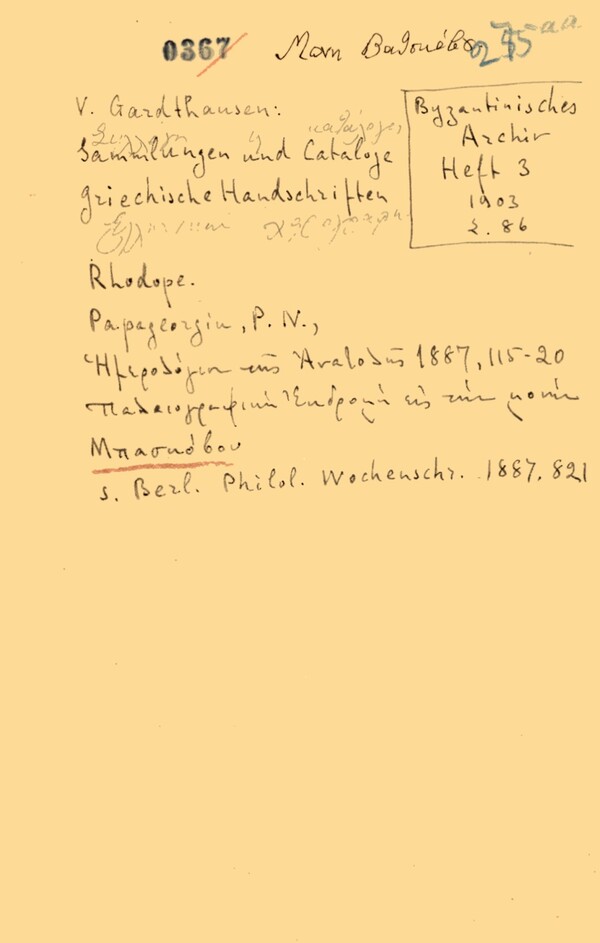 0367 Μονη 275 aa
V. Gardthausen:
Sammlungen und Cataloge
griechische Handschriften
Byzantinisches
Archiv
Heft 3
1903
Σ. 86
Rhodope.
Papageorgiu, P. N.,
Ἡμερολόγιον τῆς Ἀνατολῆς 1887, 115-20
Παλαιογραφικὴ Ἐκδρομὴ εἰς τὴν μονὴν
Μπασκόβου
s. Berl. Philol. Wochenschr. 1887. 821